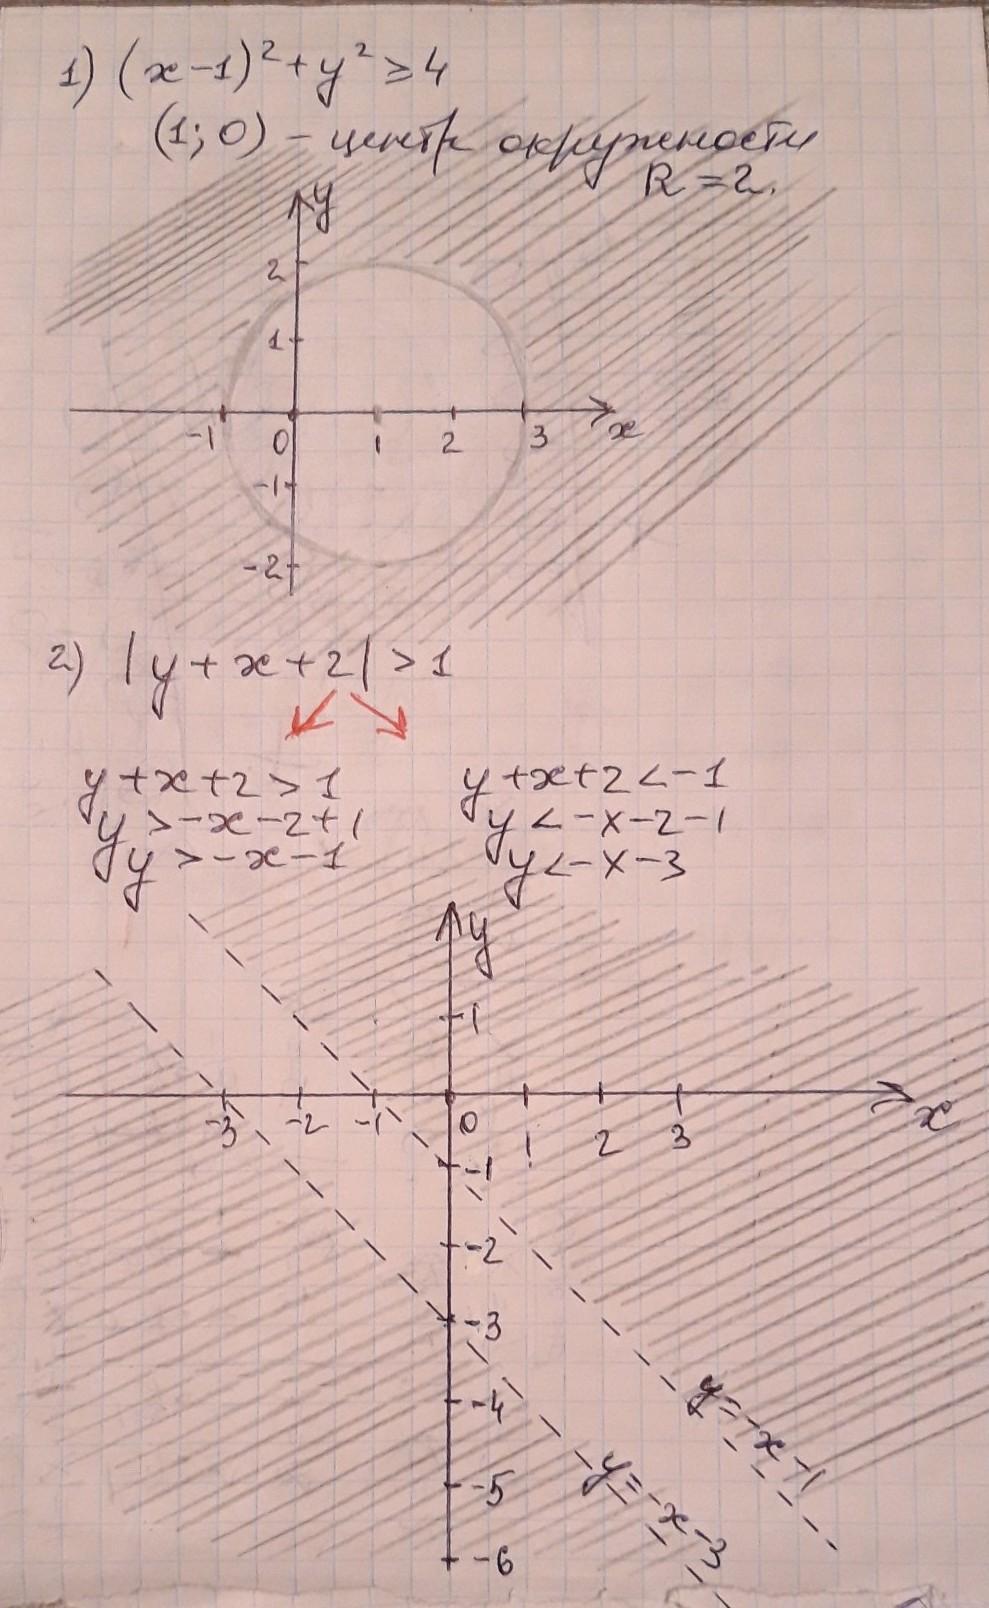 1) (x-1)² + y² ≥ 4
(1; 0) - центр окружности
R = 2.
y
2
1
-1 0 1 2 3 x
-1
-2
2) |y + x + 2| > 1
y + x + 2 > 1 y + x + 2 < -1
y > -x - 2 + 1 y < -x - 2 - 1
y > -x - 1 y < -x - 3
y
1
-3 -2 -1 0 1 2 3 x
-1
-2
-3
y = -x - 1
-4
y = -x - 3
-5
-6